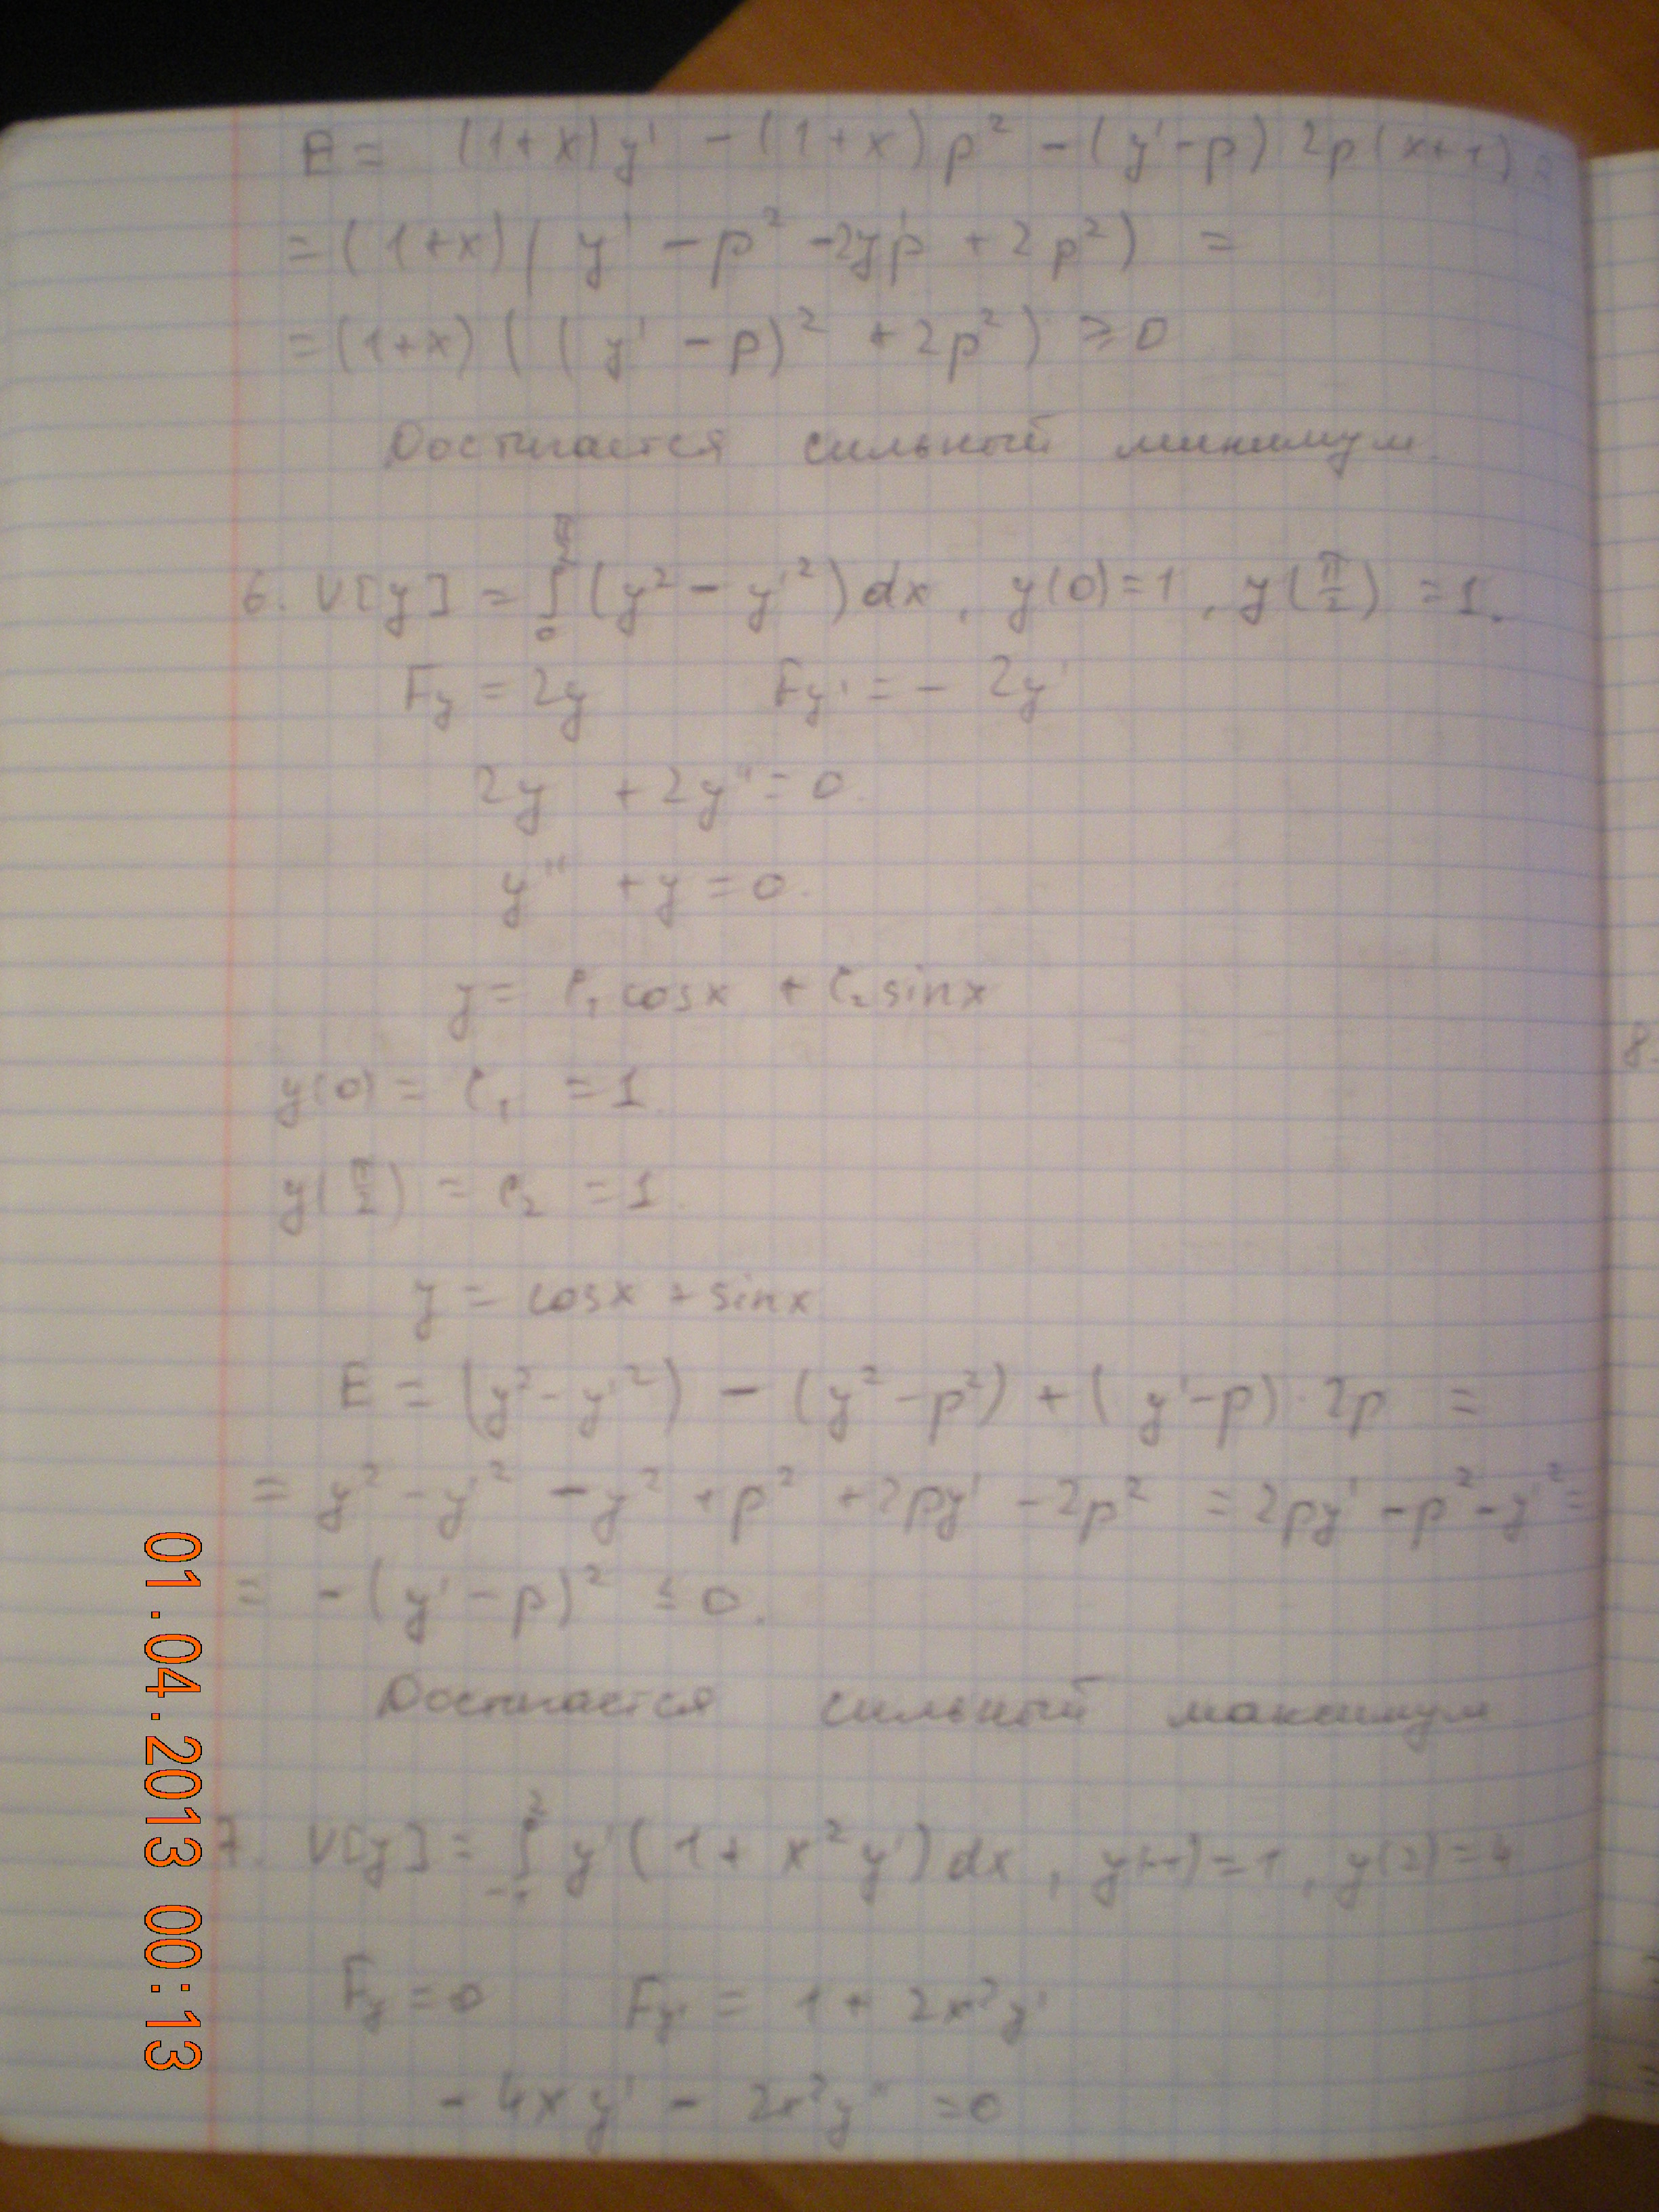 E = (1+x)y' - (1+x)p² - (y'-p)2p(x+1) =
= (1+x)(y' - p² - 2y'p + 2p²) =
= (1+x)((y' - p)² + 2p²) ≥ 0
Достигается сильный минимум.
6. V[y] = ∫₀^{π/2} (y² - y'²)dx, y(0)=1, y(π/2) = 1.
Fy = 2y Fy' = - 2y'
2y + 2y'' = 0.
y'' + y = 0.
y = C₁cosx + C₂sinx
y(0) = C₁ = 1.
y(π/2) = C₂ = 1.
y = cosx + sinx
E = (y² - y'²) - (y² - p²) + (y'-p)·2p =
= y² - y'² - y² + p² + 2py' - 2p² = 2py' - p² - y'² =
= -(y' - p)² ≤ 0.
Достигается сильный максимум
7. V[y] = ∫₋₁² y'(1 + x²y')dx, y(-1)=1, y(2)=4
Fy = 0 Fy' = 1 + 2x²y'
- 4xy' - 2x²y'' = 0
8.
01.04.2013 00:13